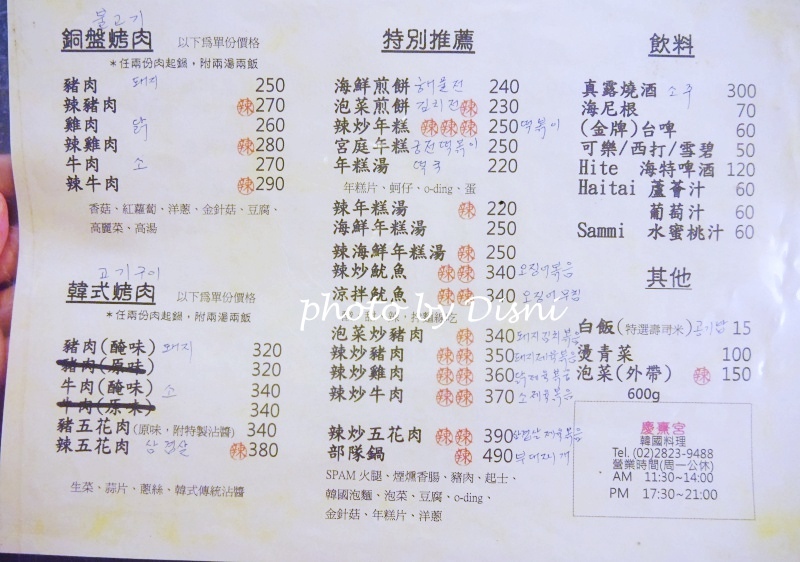 불고기
銅盤烤肉 以下為單份價格
*任兩份肉起鍋,附兩湯兩飯
豬肉 돼지 250
辣豬肉 辣 270
雞肉 닭 260
辣雞肉 辣 280
牛肉 소 270
辣牛肉 辣 290
香菇、紅蘿蔔、洋蔥、金針菇、豆腐、
高麗菜、高湯
고기구이
韓式烤肉 以下為單份價格
*任兩份肉起鍋,附兩湯兩飯
豬肉(醃味) 돼지 320
豬肉(原味) 320
牛肉(醃味) 소 340
牛肉(原味) 340
豬五花肉(原味,附特製沾醬) 340
辣五花肉 삼겹살 辣 380
生菜、蒜片、蔥絲、韓式傳統沾醬
特別推薦
海鮮煎餅 해물전 240
泡菜煎餅 김치전 辣 230
辣炒年糕 辣 辣 辣 250 떡볶이
宮庭年糕 궁전떡볶이 250
年糕湯 떡국 220
年糕片、蚵仔、o-ding、蛋
辣年糕湯 辣 220
海鮮年糕湯 250
辣海鮮年糕湯 辣 250
辣炒魷魚 辣 辣 340 오징어볶음
涼拌魷魚 辣 辣 340 오징어무침
泡菜炒豬肉 辣 340 돼지김치볶음
辣炒豬肉 辣 辣 350 돼지제육볶음
辣炒雞肉 辣 辣 360 닭제육볶음
辣炒牛肉 辣 辣 370 소제육볶음
辣炒五花肉 辣 辣 390 삼겹살제육볶음
部隊鍋 辣 490 부대찌개
SPAM火腿、煙燻香腸、豬肉、起士、
韓國泡麵、泡菜、豆腐、o-ding、
金針菇、年糕片、洋蔥
飲料
真露燒酒 소주 300
海尼根 70
(金牌)台啤 60
可樂/西打/雪碧 50
Hite 海特啤酒 120
Haitai 蘆薈汁 60
葡萄汁 60
Sammi 水蜜桃汁 60
其他
白飯(特選壽司米) 공기밥 15
燙青菜 100
泡菜(外帶) 辣 150
600g
慶熹宮
韓國料理
Tel. (02)2823-9488
營業時間(周一公休)
AM 11:30~14:00
PM 17:30~21:00
photo by Disni